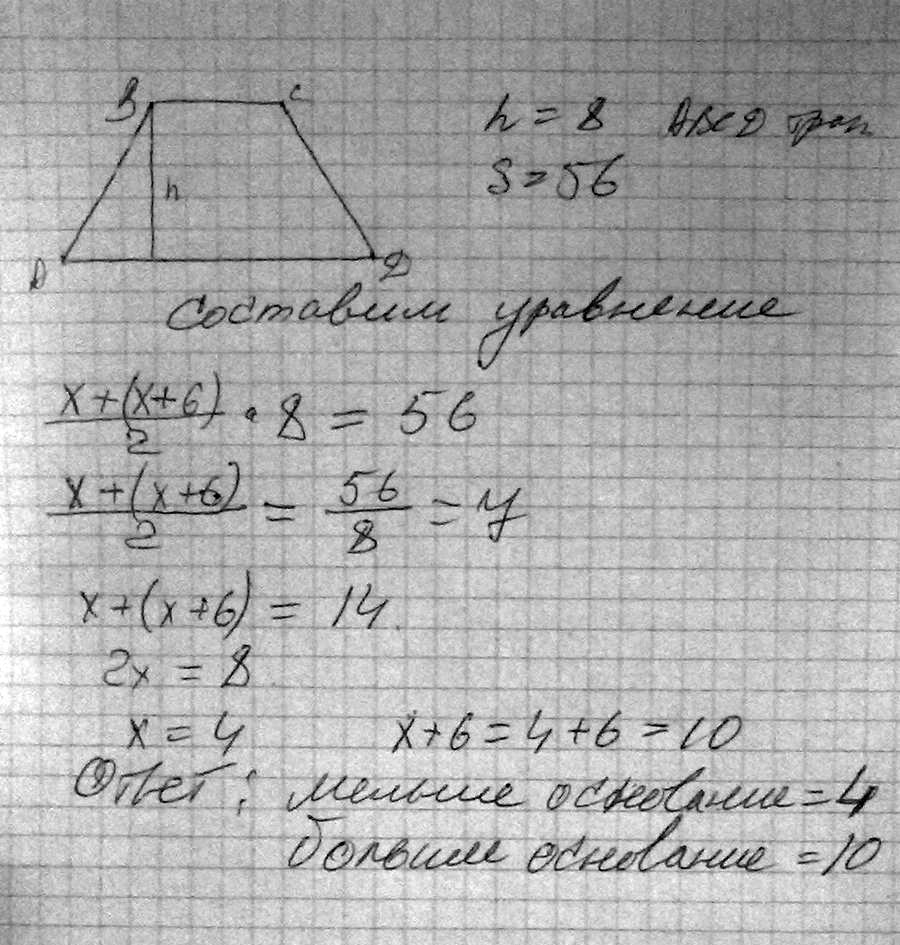 B C
h = 8 ABCD трап
h
S = 56
A D
составим уравнение
(x + (x + 6))/2 · 8 = 56
(x + (x + 6))/2 = 56/8 = 7
x + (x + 6) = 14
2x = 8
x = 4 x + 6 = 4 + 6 = 10
Ответ: меньше основание = 4
больше основание = 10